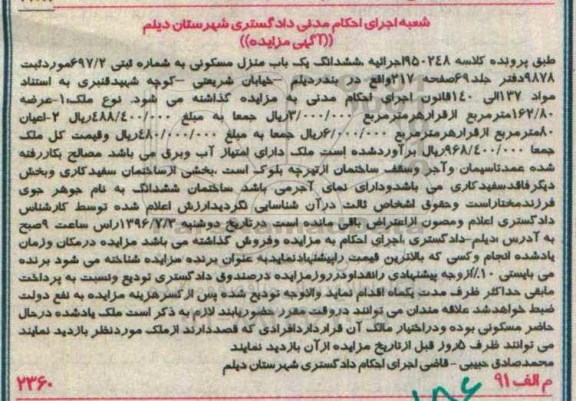 شعبه اجرای احکام مدنی دادگستری شهرستان دیلم
((آگهی مزایده))
طبق پرونده کلاسه ۹۵۰۲۴۸اجرائیه ،ششدانگ یک باب منزل مسکونی به شماره ثبتی ۶۹۷/۲موردثبت
۹۸۷۸دفتر جلد۶۹صفحه ۲۱۷واقع در بندردیلم –خیابان شریعتی –کوچه شهیدقنبری به استناد
مواد ۱۳۷الی ۱۴۰قانون اجرای احکام مدنی به مزایده گذاشته می شود. نوع ملک۱-عرضه
۱۶۲/۸۰مترمربع ازقرارهرمترمربع ۳/۰۰۰/۰۰۰ریال جمعا به مبلغ ۴۸۸/۴۰۰/۰۰۰ریال ۲-اعیان
۸۰مترمربع ازقرارهرمترمربع ۶/۰۰۰/۰۰۰ریال جمعا به مبلغ ۴۸۰/۰۰۰/۰۰۰ریال وقیمت کل ملک
جمعا ۹۶۸/۴۰۰/۰۰۰ریال برآوردشده است ملک دارای امتیاز آب وبرق می باشد مصالح بکاررفته
شده عمدتاسیمان وآجر وسقف ساختمان ازتیرچه بلوک است ،بخشی ازساختمان سفیدکاری وبخش
دیگرفاقدسفیدکاری می باشدودارای نمای آجرمی باشد ساختمان ششدانگ به نام جوهر جوی
فرزندمختاراست وحقوق اشخاص ثالث درآن شناسایی نگردیدارزش اعلام شده توسط کارشناس
دادگستری اعلام ومصون ازاعتراض باقی مانده است درتاریخ دوشنبه ۱۳۹۶/۷/۳راس ساعت ۹صبح
به آدرس :دیلم-دادگستری ،اجرای احکام به مزایده وفروش گذاشته می باشد مزایده درمکان وزمان
یادشده انجام وکسی که بالاترین قیمت راپیشنهادنمایدبه عنوان برنده مزایده شناخته می شود برنده
می بایستی ۱۰٪ازوجه پیشنهادی رانقداودرروزمزایده درصندوق دادگستری تودیع ونسبت به پرداخت
مابقی حداکثر ظرف مدت یکماه اقدام نماید والاوجه تودیع شده پس ازکسرهزینه مزایده به نفع دولت
ضبط خواهدشد علاقه مندان می توانند دروقت مقرر حضوریابند لازم به ذکر است ملک یادشده درحال
حاضر مسکونی بوده ودراختیار مالک آن قرارداردافرادی که قصددارند ازملک موردنظر بازدید نمایند
می توانند ظرف ۵روز قبل ازتاریخ مزایده ازآن بازدید نمایند
محمدصادق حبیبی -قاضی اجرای احکام دادگستری شهرستان دیلم
م الف ۹۱ ۲۳۶۰